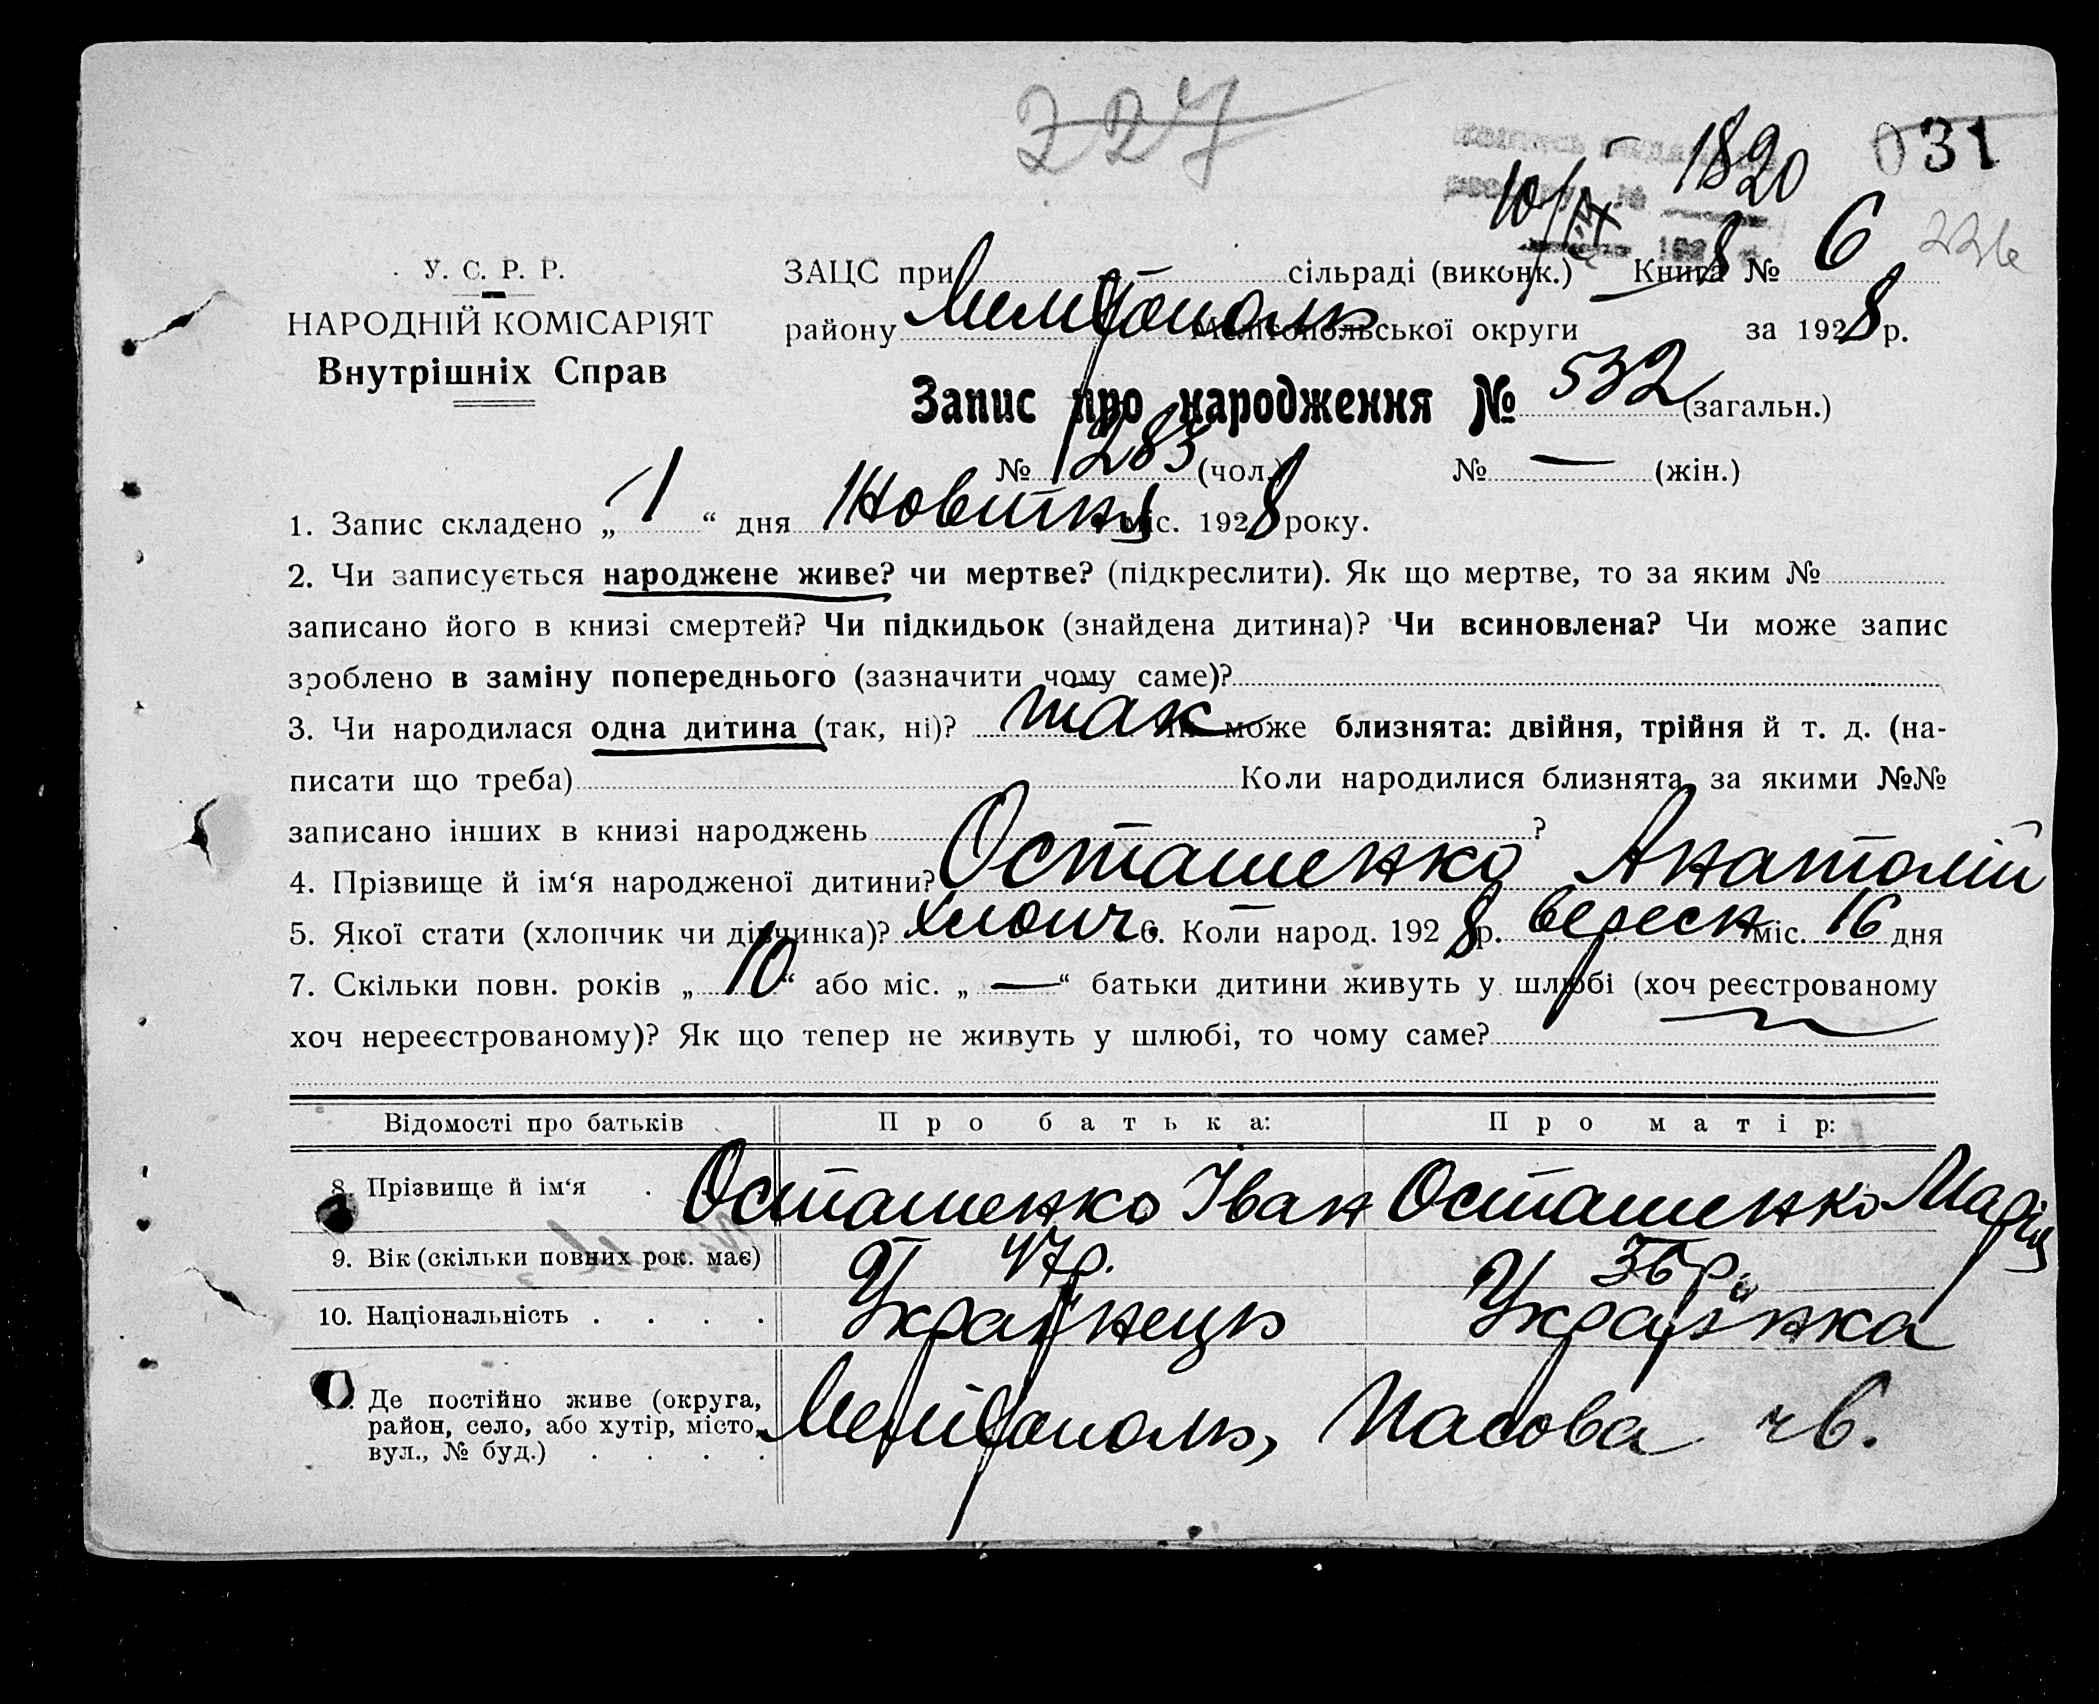 227
031
10/IX 1820
226
У. С. Р. Р.
НАРОДНІЙ КОМІСАРІЯТ
Внутрішніх Справ
ЗАЦС при сільраді (виконк.) Книга № 6
району Мелітополь Мелітопольської округи за 1928 р.
Запис про народження № 532 (загальн.)
№ 283 (чол.) № — (жін.)
1. Запис складено „ 1 “ дня Жовтня міс. 1928 року.
2. Чи записується народжене живе? чи мертве? (підкреслити). Як що мертве, то за яким №
записано його в книзі смертей? Чи підкидьок (знайдена дитина)? Чи всиновлена? Чи може запис
зроблено в заміну попереднього (зазначити чому саме)?
3. Чи народилася одна дитина (так, ні)? так Чи може близнята: двійня, трійня й т. д. (на-
писати що треба) Коли народилися близнята, за якими №№
записано інших в книзі народжень ?
4. Прізвище й ім‘я народженої дитини? Осташенко Анатолій
5. Якої стати (хлопчик чи дівчинка)? хлопч. 6. Коли народ. 1928 р. вересн міс. 16 дня
7. Скільки повн. років „ 10 “ або міс. „ — “ батьки дитини живуть у шлюбі (хоч реєстрованому
хоч нереєстрованому)? Як що тепер не живуть у шлюбі, то чому саме?
Відомості про батьків Про батька: Про матір:
8. Прізвище й ім‘я . Осташенко Іван Осташенко Марія
9. Вік (скільки повних рок. має) 47р. 36р.
10. Національність . . . . Українець Українка
Де постійно живе (округа,
район, село, або хутір, місто,
вул., № буд.) . . . . Мелітополь,